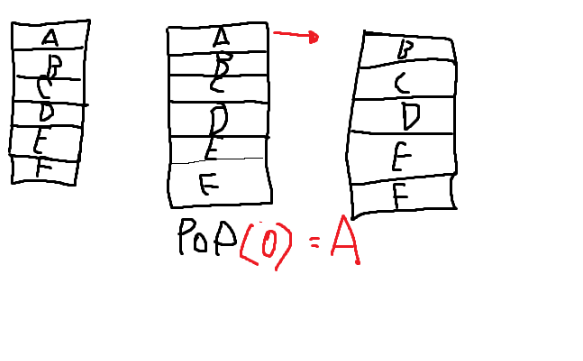 A
B
C
D
E
F
A
B
C
D
E
F
B
C
D
E
F
POP(0) = A